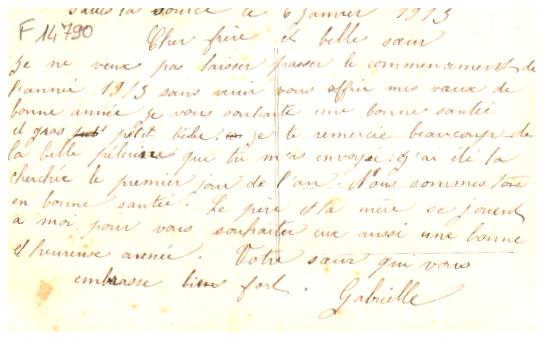 la source le 6 Janvier 1913
F 14790
Cher frère et belle sœur
Je ne veux pas laisser passer le commencement de
l'année 1913 sans venir vous offrir mes vœux de
bonne année je vous souhaite une bonne santié
et gros petit bébé. je te remercie beaucoup de
la belle pélerine que tu m'as envoyé. j'ai été la
chercher le premier jour de l'an. Nous sommes tous
en bonne santié. Le père et la mère se jouent
a moi pour vous souhaiter eux aussi une bonne
et heureuse année. Votre sœur qui vous
embrasse bien fort.
Gabrielle